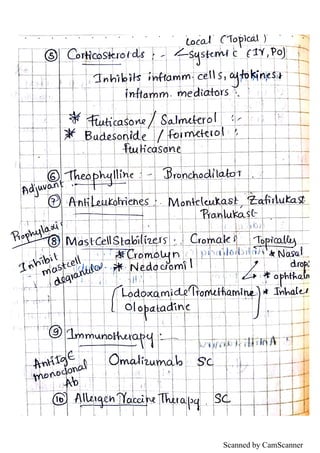 Local (Topical)
⑤ Corticosteroids :- Systemic (IV, PO)
Inhibits inflamm. cells, cytokines &
inflamm. mediators.
* Fluticasone / Salmeterol :-
* Budesonide / formeterol :
fluticasone
⑥ Theophylline :- Bronchodilator.
Adjuvant
⑦ AntiLeukotrienes : Monteleukast, Zafirlukast
Pranlukast
Prophylaxis
⑧ MastCellStabilizers : Cromates Topically
* Cromolyn * Nasal
Inhibit mastcell degranulation * Nedocromil drops
* ophthalm
(Lodoxamide Tromethamine) * Inhaler
Olopatadine
⑨ Immunotherapy :-
AntiIgE monoclonal Ab Omalizumab SC
⑩ Allergen Vaccine Therapy SC
Scanned by CamScanner